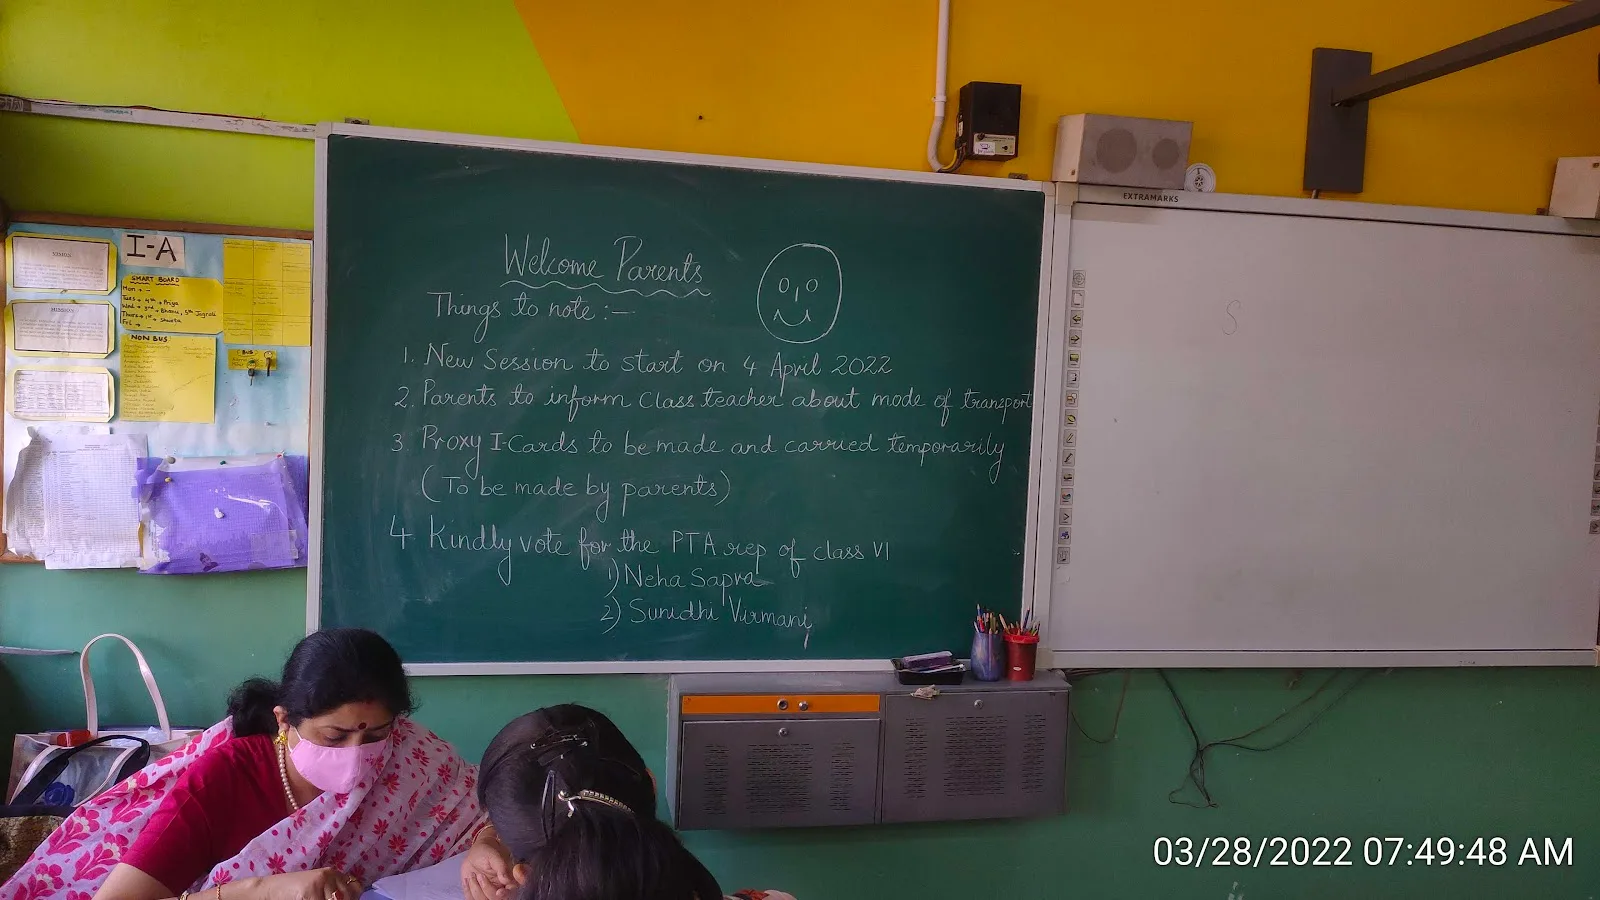 VISION
MISSION
I-A
SMART BOARD
Mon → -
Tues → 4th → Priya
Wed → 3rd
Thurs → 1st → Bhanu, 5th Jagrati
Fri → -
NON BUS
BUS
Welcome Parents
Things to note :-
1. New Session to start on 4 April 2022
2. Parents to inform Class teacher about mode of transport
3. Proxy I-Cards to be made and carried temporarily
(To be made by parents)
4 Kindly vote for the PTA rep of class VI
1) Neha Sapra
2) Sunidhi Virmani
EXTRAMARKS
S
03/28/2022 07:49:48 AM